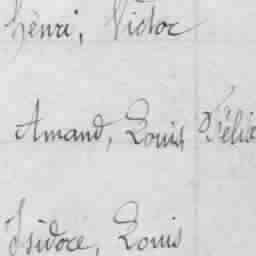 Henri, Victor
Amand, Louis Félix
Isidore, Louis